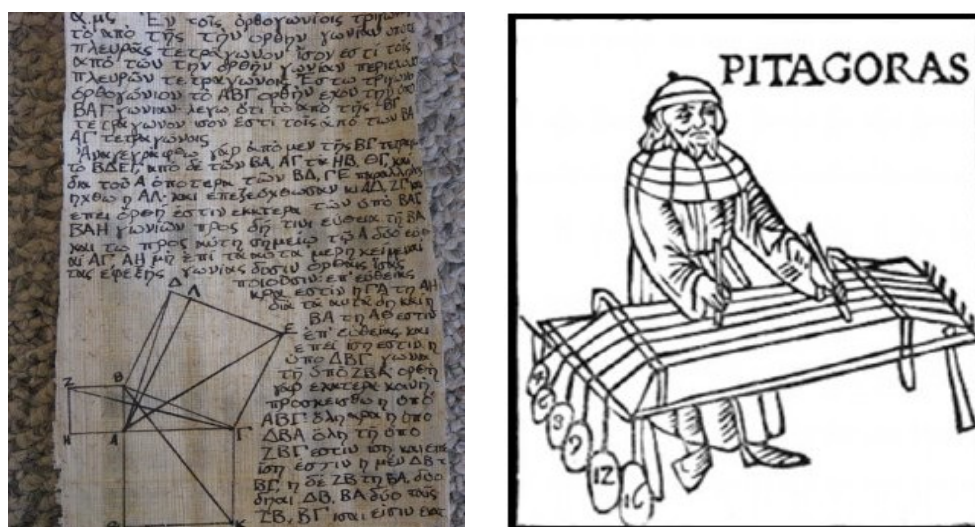 Ἐν τοῖς ὀρθογωνίοις
τὸ ἀπὸ τῆς τὴν ὀρθὴν γωνίαν
πλευρᾶς τετράγωνον ἴσον ἐστὶ τοῖς
ἀπὸ τῶν τὴν ὀρθὴν γωνίαν
πλευρῶν τετραγώνοις. Ἔστω
ὀρθογώνιον τὸ ΑΒΓ ὀρθὴν ἔχον τὴν ὑπὸ
ΒΑΓ γωνίαν· λέγω, ὅτι τὸ ἀπὸ τῆς ΒΓ
τετράγωνον ἴσον ἐστὶ τοῖς ἀπὸ τῶν ΒΑ
ΑΓ τετραγώνοις
Ἀναγεγράφθω γὰρ ἀπὸ μὲν τῆς ΒΓ
τὸ ΒΔΕΓ, ἀπὸ δὲ τῶν ΒΑ, ΑΓ τὰ ΗΒ, ΘΓ, καὶ
διὰ τοῦ Α ὁποτέρᾳ τῶν ΒΔ, ΓΕ παράλληλος
ἤχθω ἡ ΑΛ· καὶ ἐπεζεύχθωσαν αἱ ΑΔ, ΖΓ καὶ
ἐπεὶ ὀρθή ἐστιν ἑκατέρα τῶν ὑπὸ ΒΑΓ
ΒΑΗ γωνιῶν πρὸς δή τινι εὐθείᾳ τῇ ΒΑ
καὶ τῷ πρὸς αὐτῇ σημείῳ τῷ Α δύο
αἱ ΑΓ, ΑΗ μὴ ἐπὶ τὰ αὐτὰ μέρη κείμεναι
τὰς ἐφεξῆς γωνίας δυσὶν ὀρθαῖς ἴσας
ποιοῦσιν· ἐπ' εὐθείας
ἐστὶν ἡ ΓΑ τῇ ΑΗ
διὰ τὰ αὐτὰ δὴ καὶ ἡ
ΒΑ τῇ ΑΘ ἐστιν
ἐπ' εὐθείας καὶ
ἐπεὶ ἴση ἐστὶν ἡ
ὑπὸ ΔΒΓ γωνία
τῇ ὑπὸ ΖΒΑ· ὀρθὴ
γὰρ ἑκατέρα κοινὴ
προσκείσθω ἡ ὑπὸ
ΑΒΓ· ὅλη ἄρα ἡ ὑπὸ
ΔΒΑ ὅλῃ τῇ ὑπὸ
ΖΒΓ ἐστιν ἴση καὶ
ἴση ἐστὶν ἡ μὲν ΔΒ
ΒΓ, ἡ δὲ ΖΒ τῇ ΒΑ, δύο
δὴ αἱ ΔΒ, ΒΑ δύο ταῖς
ΖΒ, ΒΓ ἴσαι εἰσὶν
Δ Λ
Ε
Ζ Β
Η Α Γ
Θ Κ
PITAGORAS
6
8
9
12
16